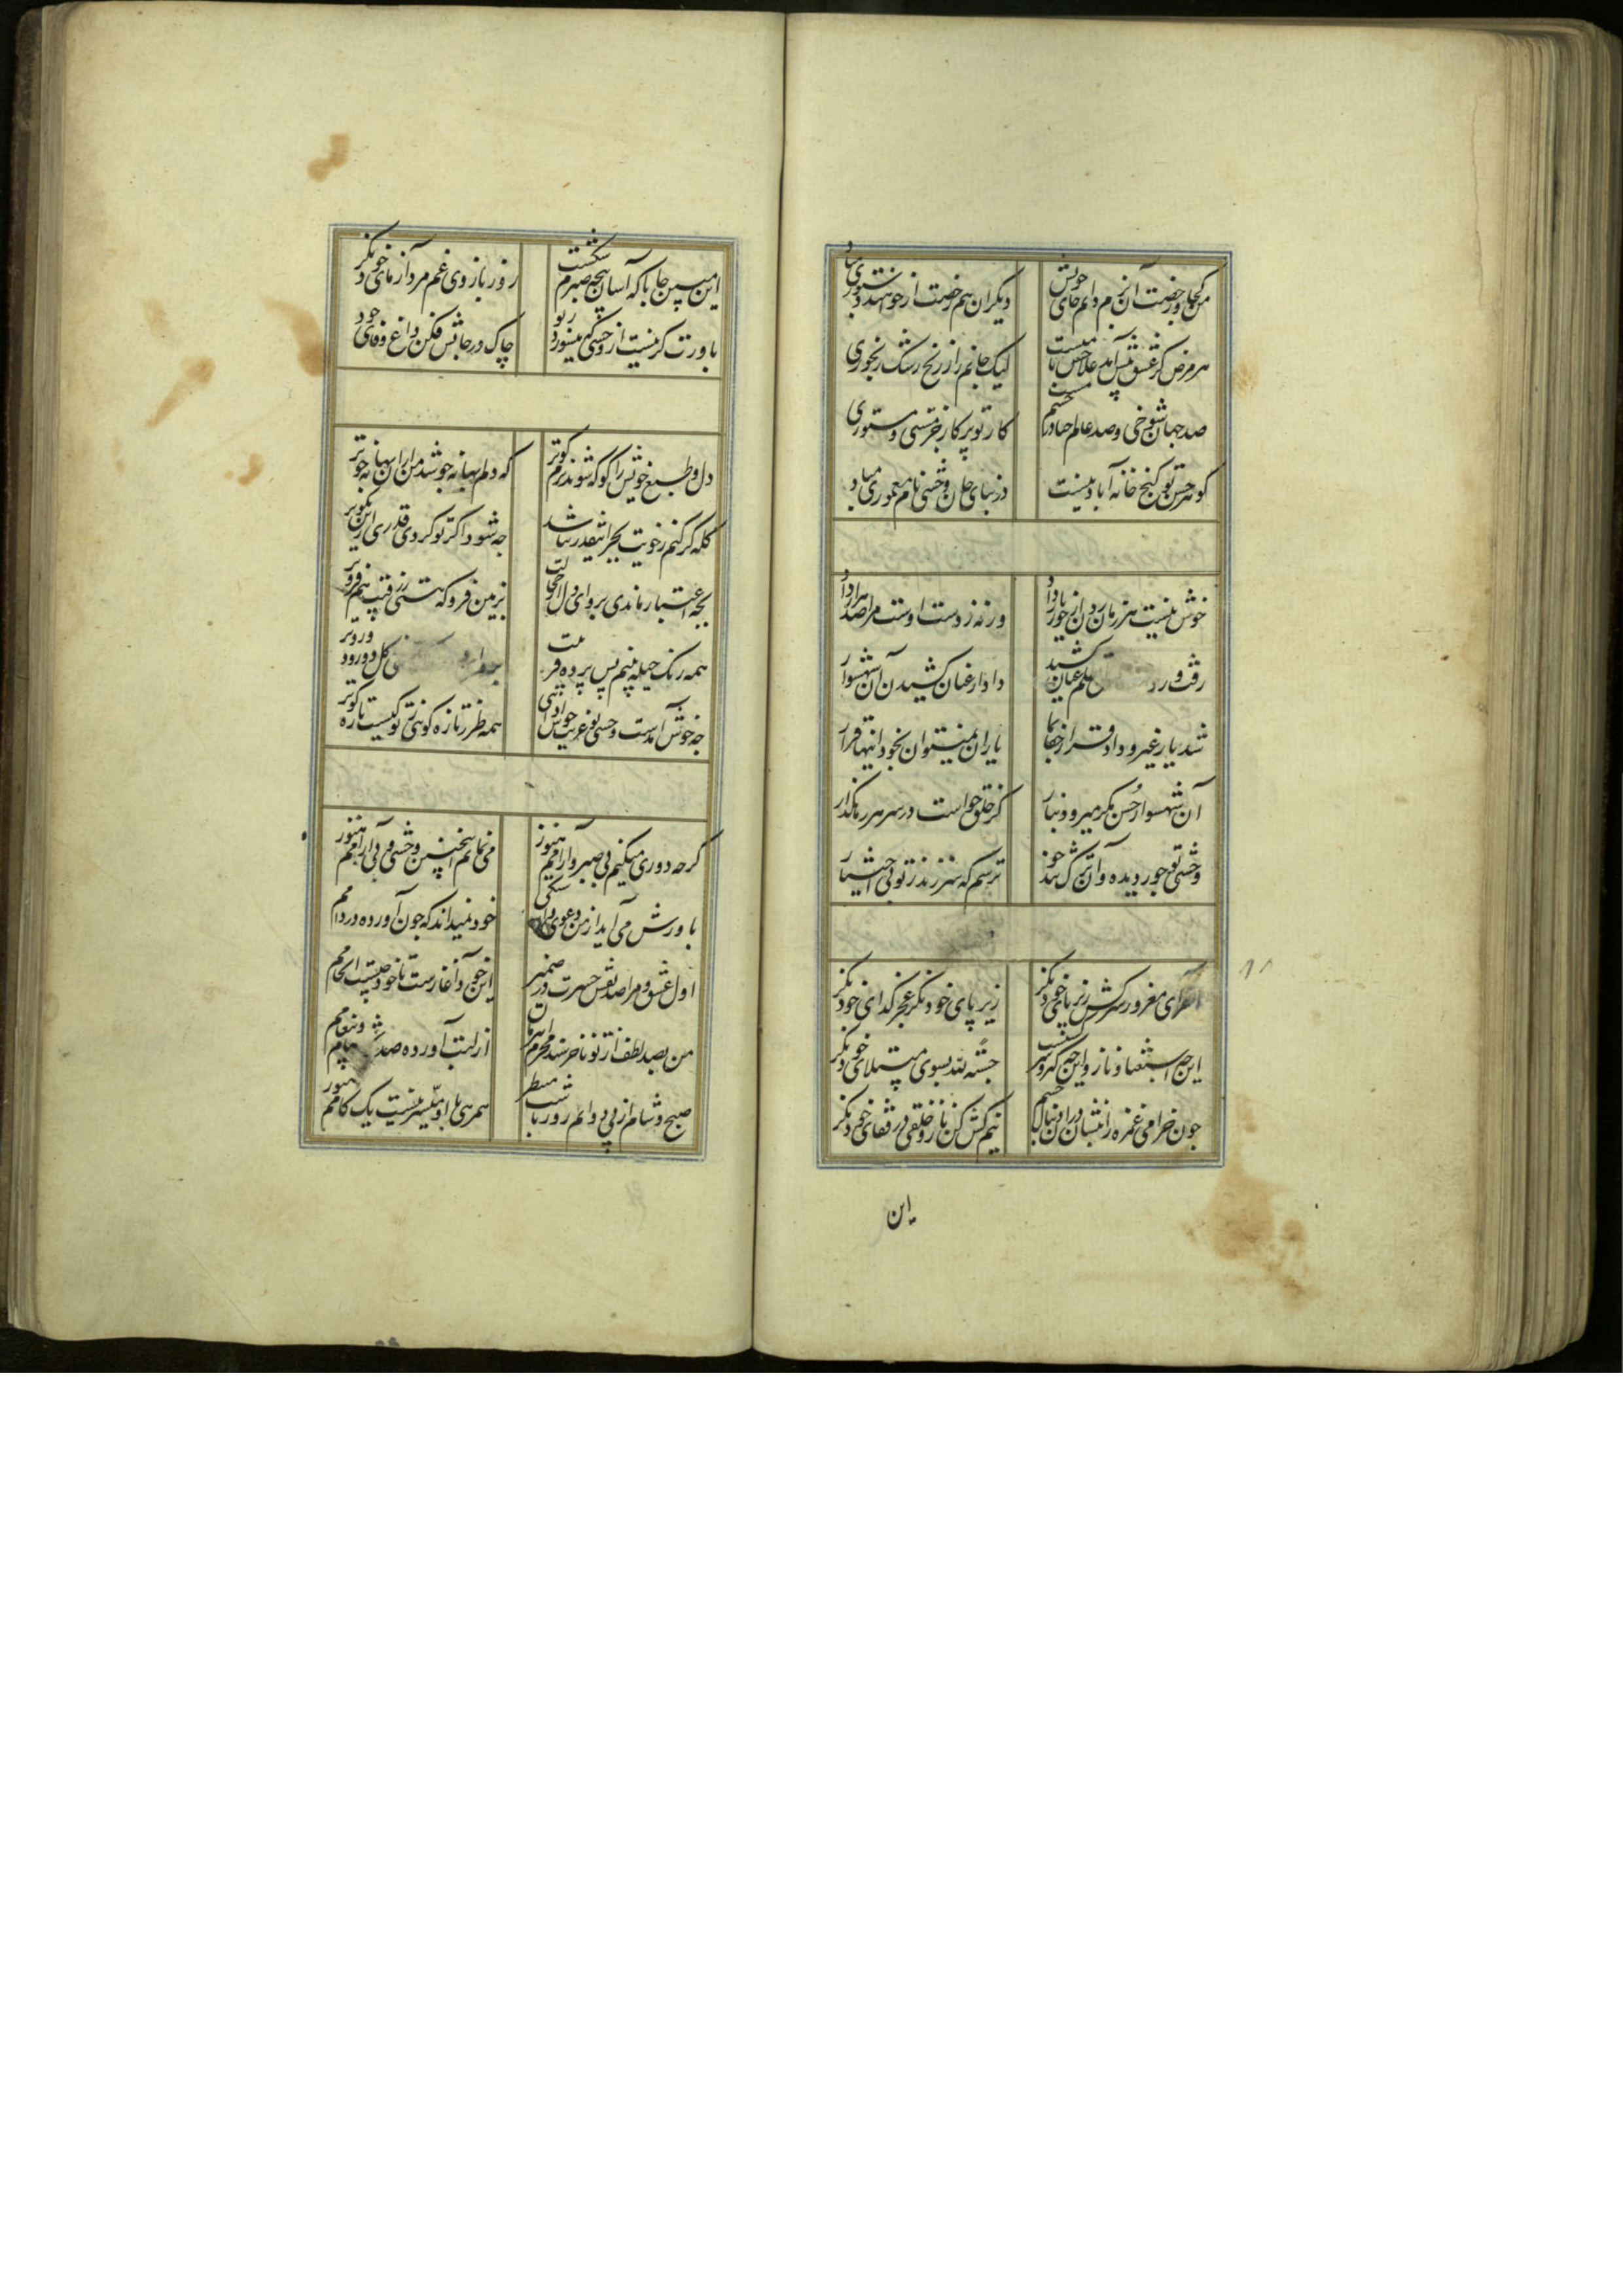 من کجا و رخصت آن بزم دانم جای خویش
دیگران هم رخصت ار خواهند دستوری مباد
هر مرض کز عشق پیش آمد علاجش با منست
لیک جانم را ز رنج رشک رنجوری
صد جهان شوخی و صد عالم حیا در چشم تست
کار تو پرکار جز مستی و مستوری
کو هر حسن تو کنج خانه آباد نیست
در بنای جان وحشی نام معموری مباد
خوش نیست هر زمان زدن از جور یار داد
ورنه ز دست اوست مرا صد هزار داد
رفت و ر عنان کشید
داد از عنان کشیدن آن شهسوار
شد یار غیر و داد قرار از جفا بما
یاران نمیتوان بخود اینها قرار
آن شهسوار حسن مگر میرود بنار
کز خلق خواست در سر هر رهگذار
وحشی تو جور دیده و آن ترک تند خو
ترسم که سر زند ز تو بی اختیار
ای مغرور سرکش زیر پای خود نگر
زیر پای خود نگر عجز گدای خود نگر
این چه استغنا و ناز و این چه کبر و سرکشیست
حسبة لله بسوی مبتلای خود نگر
چون خرامی غمزه را بنشان در آن دنبال چشم
نیم کش کن ناز و خلقی در قفای خود نگر
این
این مبین جانا که آسان پنجه صبرم شکست
زور بازوی غم مرد آزمای خود نگر
باورت گر نیست از وحشی که میسوزد ز تو
چاک در جانش فکن داغ وفای خود
دل و طبع خویش را گو که شوند نرم کوتر
که دلم بهانه جو شد من از آن بهانه جوتر
گله گر کنم ز خویت بجز اینقدر نباشد
چه شود اگر تو کردی قدری ازین نکوتر
بچه اعتبار ماندی برو ای دل از خجالت
بزمین فرو که هستی ز رقیب هم فروتر
همه رنگ حیله بینم پس پرده فریبت
گل دو رود و روتر
چه خوش آمدست وحشی تو غریب خوش ادائی
همه طرز تازه گوئی ز تو کیست تازه گوتر
گرچه دوری میکنم بی صبر و آرامم هنوز
می نمایم اینچنین وحشی ولی رامم هنوز
باورش می آید از من دعوی
خود نمیداند که چون آورده در دامم
اول عشق و مرا صد نقش حیرت در ضمیر
این خود آغازست تا خود چیست انجامم
من بصد لطف از تو ناخرسند و محروم
از لبت آورده صد پیغامم
صبح و شام از پی دوانم روز تا شب منتظر
همرهی با او میسر نیست یک گامم هنوز